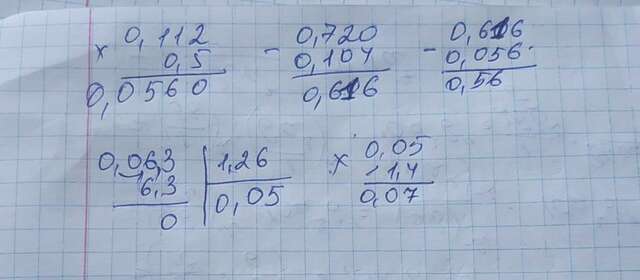 × 0,112 - 0,720 - 0,616
0,5 0,104 0,056
0,0560 0,616 0,56
0,063 1,26 × 0,05
6,3 0,05 1,4
0 0,07